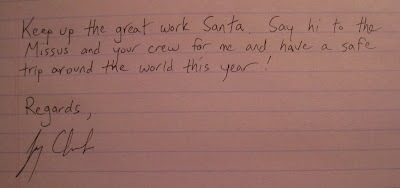 Keep up the great work Santa. Say hi to the
Missus and your crew for me and have a safe
trip around the world this year!
Regards,